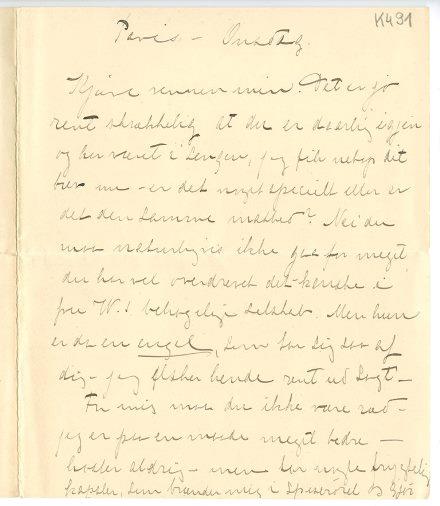 K491
Paris - Onsdag.
Kjære vennen min! Det er jo
rent skrækkelig at du er daarlig igjen
og har været i sengen, jeg fik netop dit
brev nu - er det noget specielt eller er
det den samme mathed? Nei du
maa naturligvis ikke gaa for meget
du har vel overdrevet det - kanske i
fru W.s behagelige selskab. Men hun
er da en engel, som tar sig saa af
dig - jeg elsker hende rent ud sagt -
For mig maa du ikke være ræd -
jeg er paa en maade meget bedre -
hoster aldrig - men har nogle
kapsler, som brænder mig i spiserøret og gjør